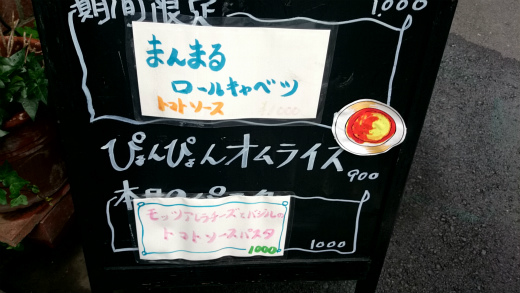 期間限定
1.000
まんまる
ロールキャベツ
トマトソース ¥1000
ぴょんぴょんオムライス
900
モッツアレラチーズとバジルの
トマトソースパスタ
1000
1000